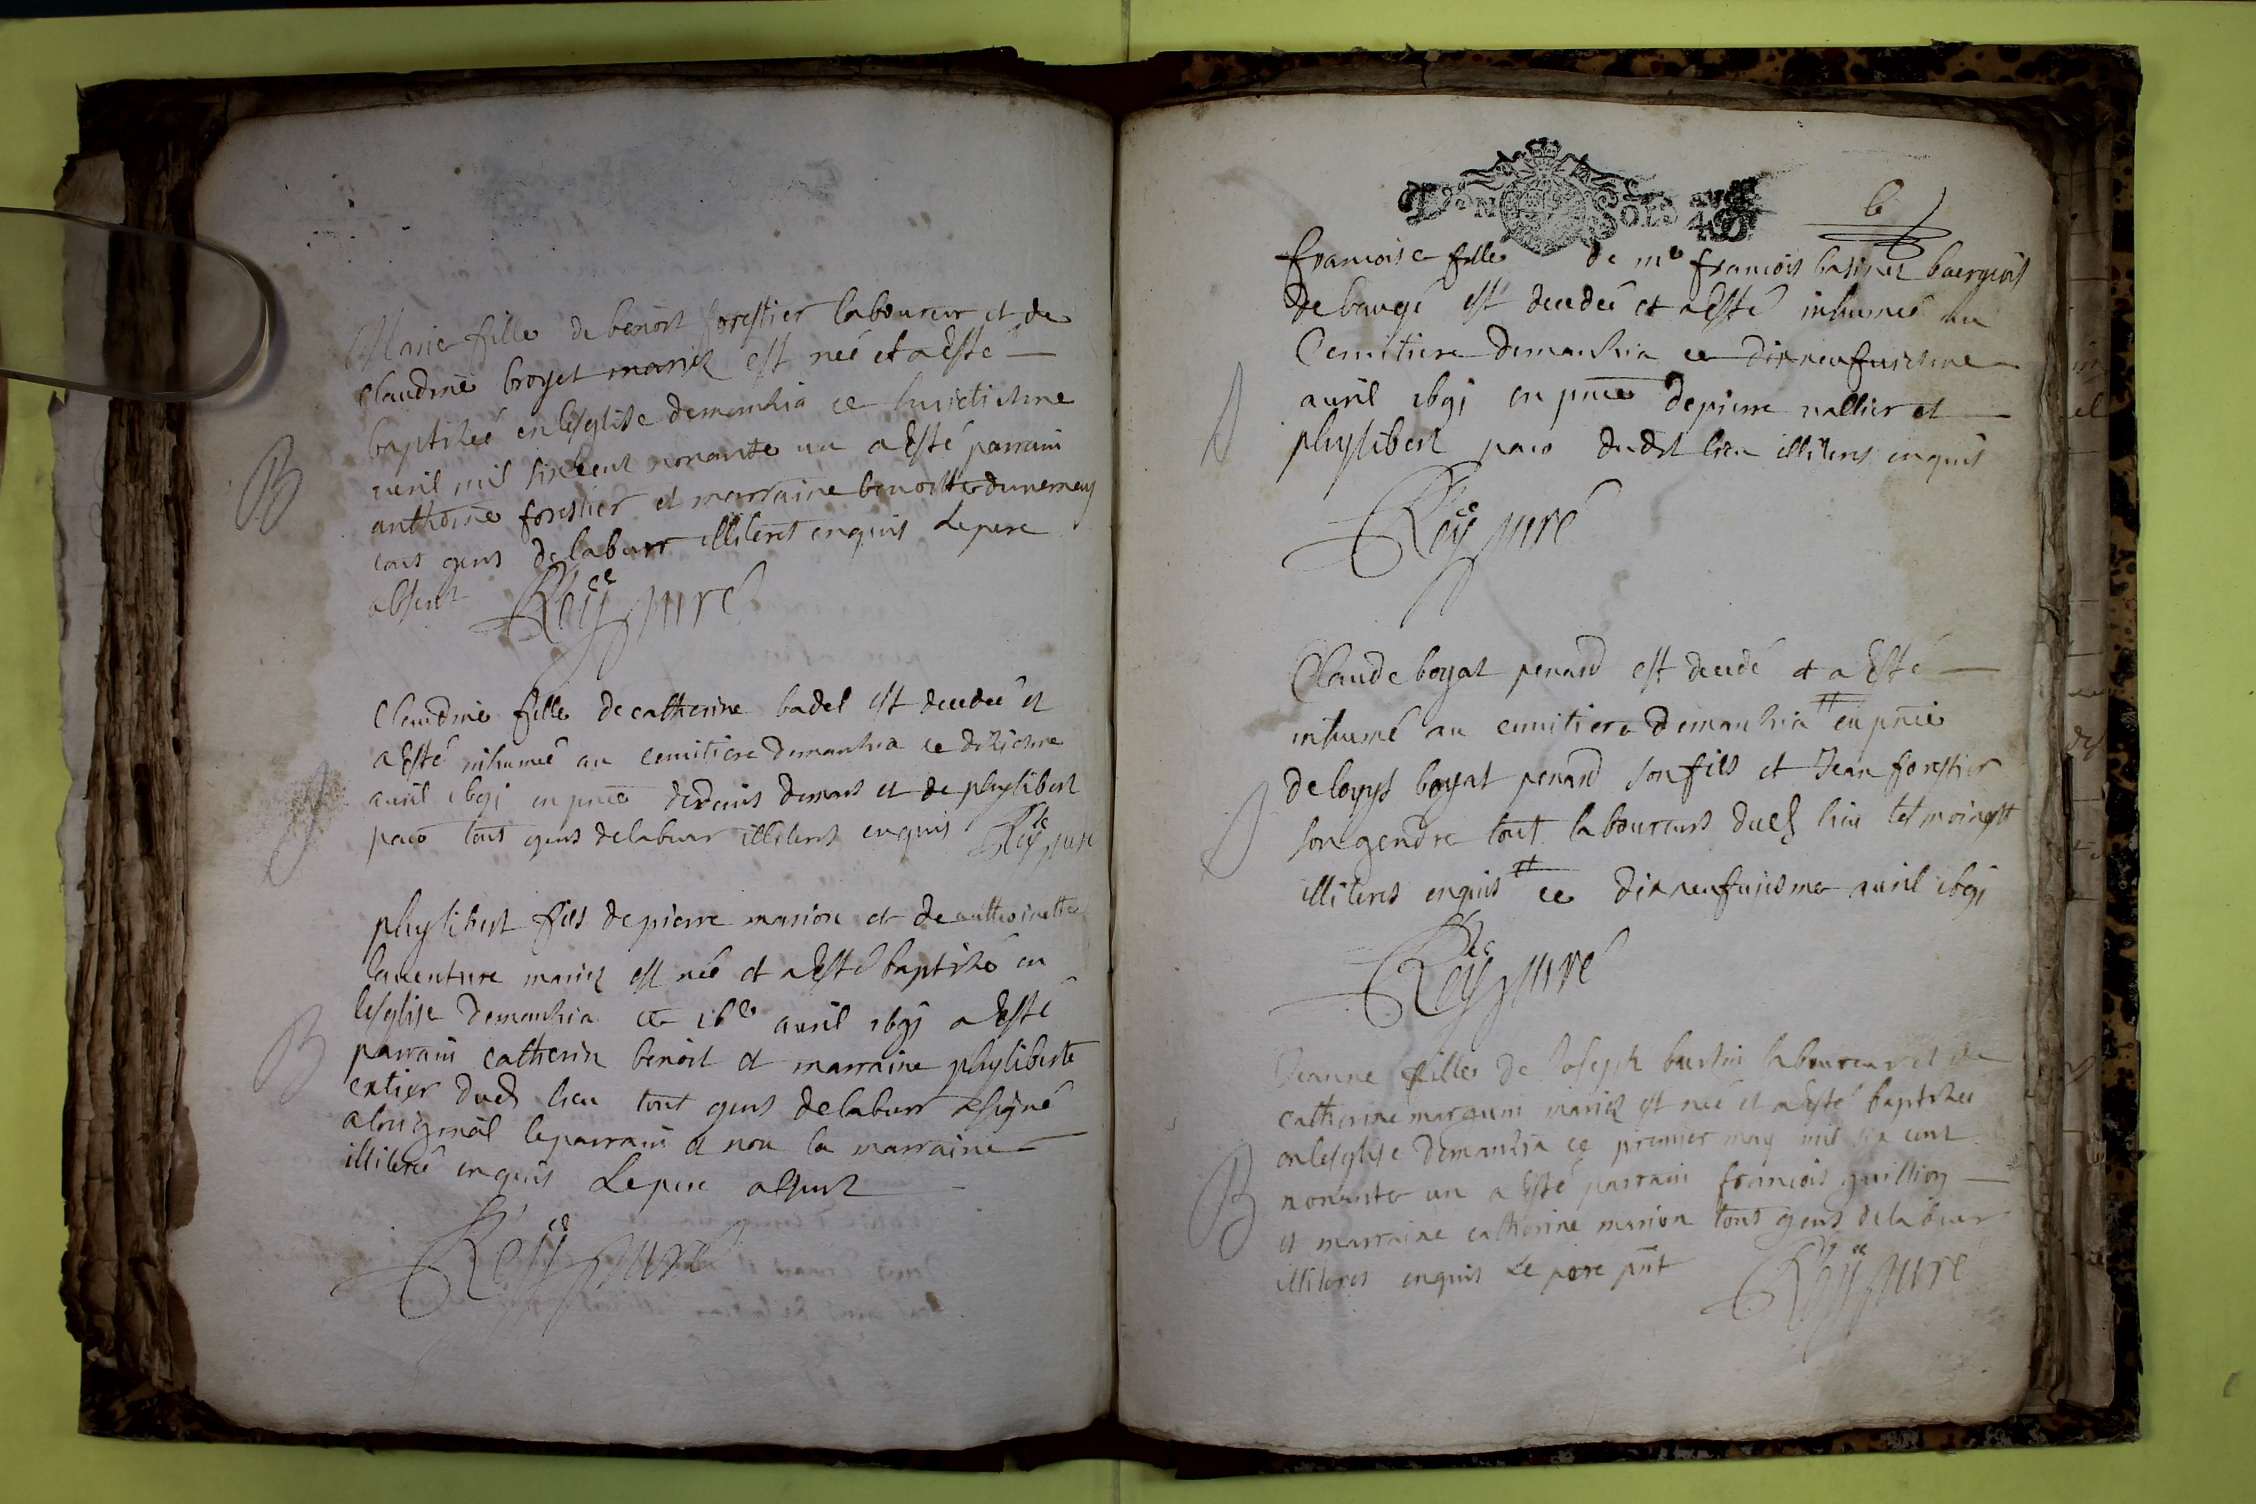 Marie fille de benoit forestier laboureur et de
Claudine broyet mariés est née et a Esté
baptisée en leglise demanhia ce huictiesme
avril mil six cent nonante un a Esté parrain
anthoine forestier et marraine benoiste
tous gens de labeur illiterés enquis Le pere
absent Rey curé
B
Claudine fille de catherine badel est decedée et
a Esté inhumée au cemitiere demanhia ce dixiesme
avril 1691 en pnce de denis et de phylibert
paco tous gens de labeur illiterés enquis Rey curé
phylibert fils de pierre marion et de anthoinette
laventure mariés est né et a Esté baptisé en
leglise demanhia ce 16e avril 1691 a Esté
parrain catherin benoit et marraine phyliberte
dud lieu tous gens de labeur a signé
a loriginal le parrain et non la marraine
illiterée enquis Le pere absent
Rey curé
B
SOLS
6
francoise fille de me francois basinet
de baugé est decedée et a Esté inhumée au
Cemitiere demanhia ce dixneufviesme
avril 1691 en pnce de pierre vallier et
phylibert paco dudt lieu illiterés enquis
Rey curé
Claude boyat penard est decedé et a Esté
inhumé au cemitiere demanhia en pnce
de loüys boyat penard son fils et Jean forestier
son gendre tout laboureurs dud lieu tesmoins
illiterés enquis ce dixneufviesme avril 1691
Rey curé
Jeanne fille de Joseph laboureur et de
catherine mariés est née et a esté baptisée
en leglise demanhia ce premier may mil six cent
nonante un a Esté parrain francois guillion
et marraine catherine marion tous gens de labeur
illiterés enquis Le pere pnt Rey curé
B